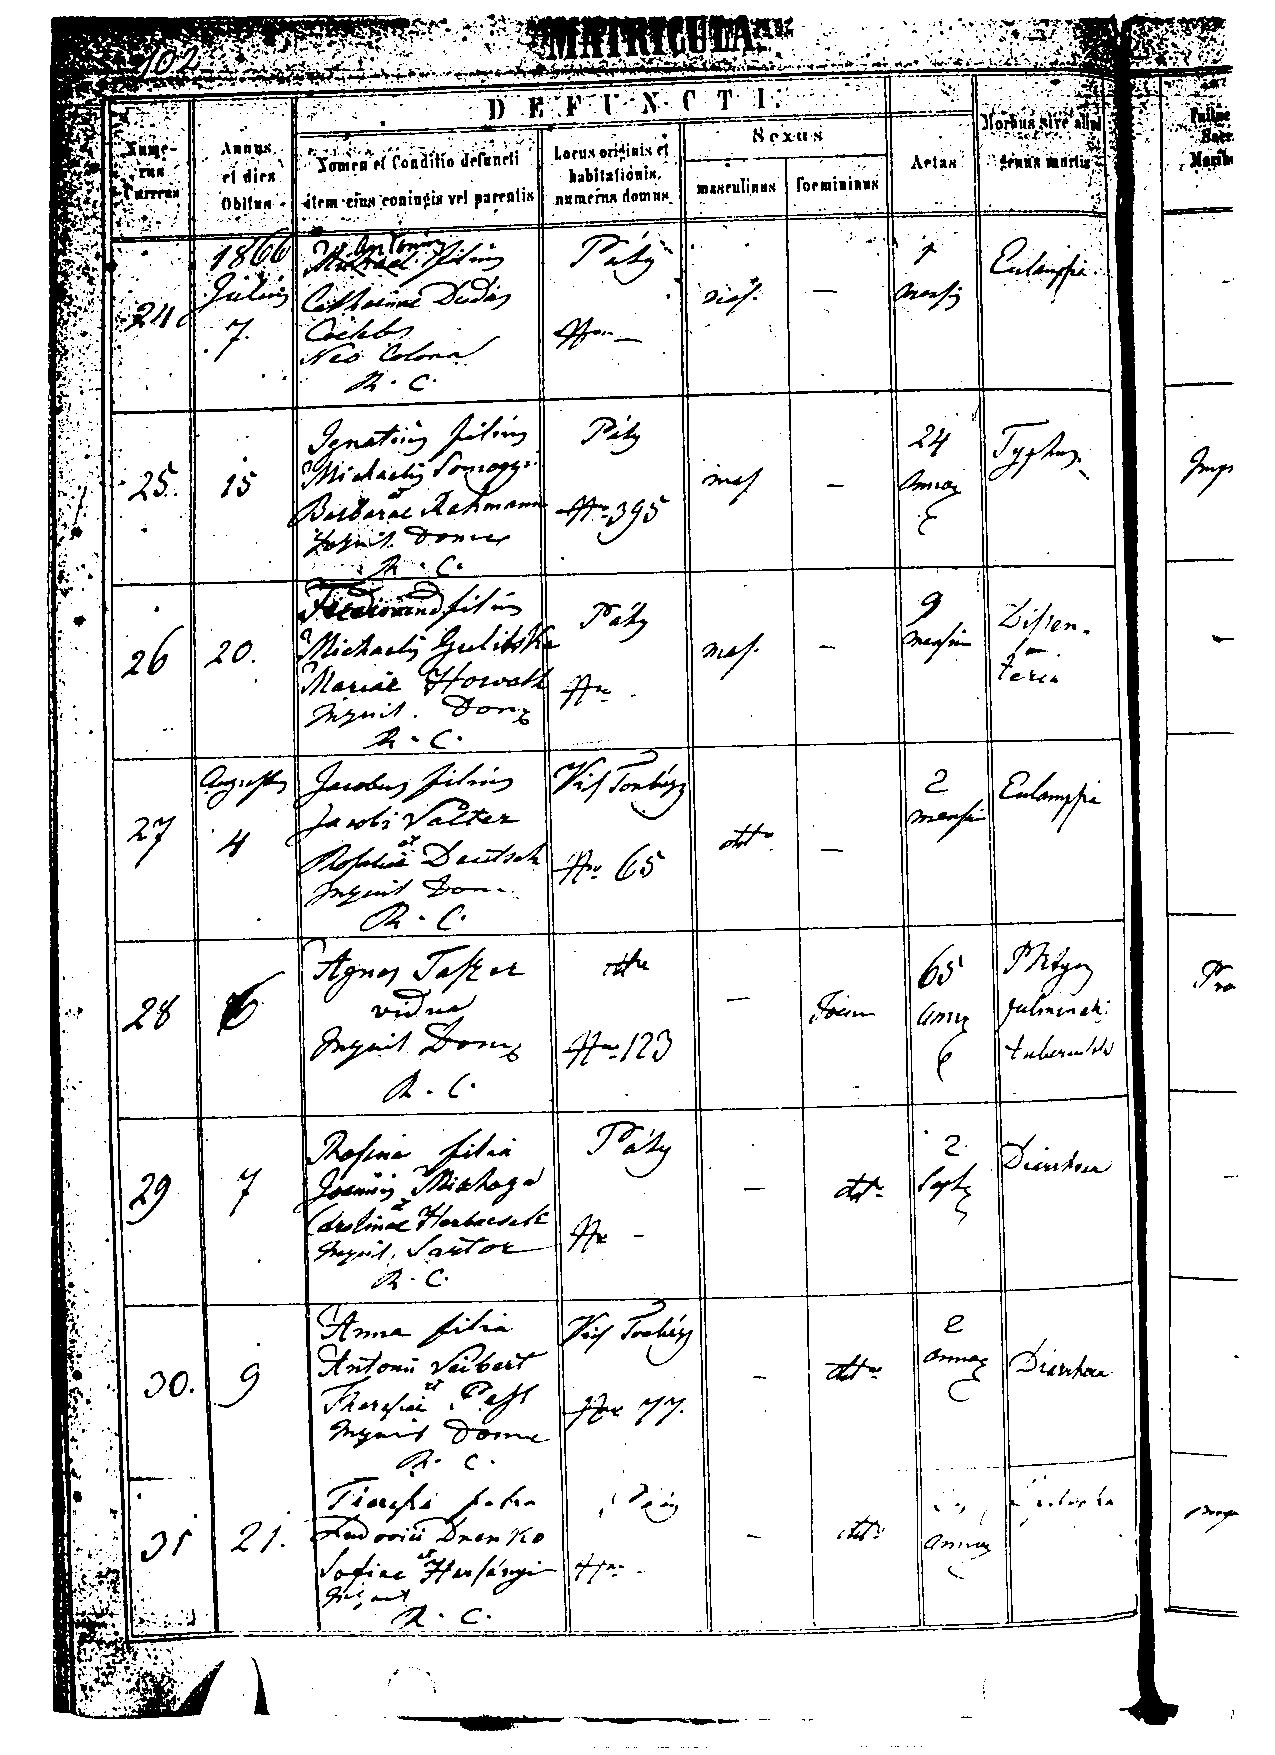 102
MATRICULA
DEFUNCTI.
Numerus Currens
Annus et dies Obitus
Nomen et Conditio defuncti item eius coniugis vel parentis
Locus originis et habitationis, numerus domus
Sexus
masculinus
foemininus
Aetas
Morbus sive aliud genus mortis
24
1866
Julius
7.
Antonius
Michael filius
Catharinae Dudás
Coelebs
Neo Colona
R. C.
Páty
Nro —
mas.
—
1
mensis
Eclampsia
25.
15
Ignatius filius
Michaelis Somogyi
et
Barbarae Rehmann
Inquil. Domus
R. C.
Páty
Nro 395
mas
—
24
Annor
Typhus
26
20.
Ferdinand filius
Michaelis Gulibska
Mariae Horvath
Inquil. Dom
R. C.
Páty
Nro
mas.
—
9
mensium
Dissen-
teria
27
Augustus
4
Jacobus filius
Jacobi Valter
et
Rosaliae Deutsch
Inquil Dom
R. C.
Vis Torbágy
Nro 65
dtto
—
2
mensium
Eclampsia
28
6
Agnes
vidua
Inquil Dom
R. C.
dtto
Nro 123
—
Foem
65
Annor
Phtysis
pulmonalis
tuberculos
29
7
Rosina filia
Joannis
et
Carolinae
Inquil. Sartor
R. C.
Páty
Nro -
—
dtto
2
Sept
Diarrhoea
30.
9
Anna filia
Antonii Vaibert
et
Theresiae
Inquil Domus
R. C.
Vis Torbágy
Nro 77.
—
dtto
2
annor
Diarrhoea
31
21.
Theresia filia
Ludovici Drenko
et
Sofiae Harsányi
R. C.
Páty
Nro -
—
dtto
Annor